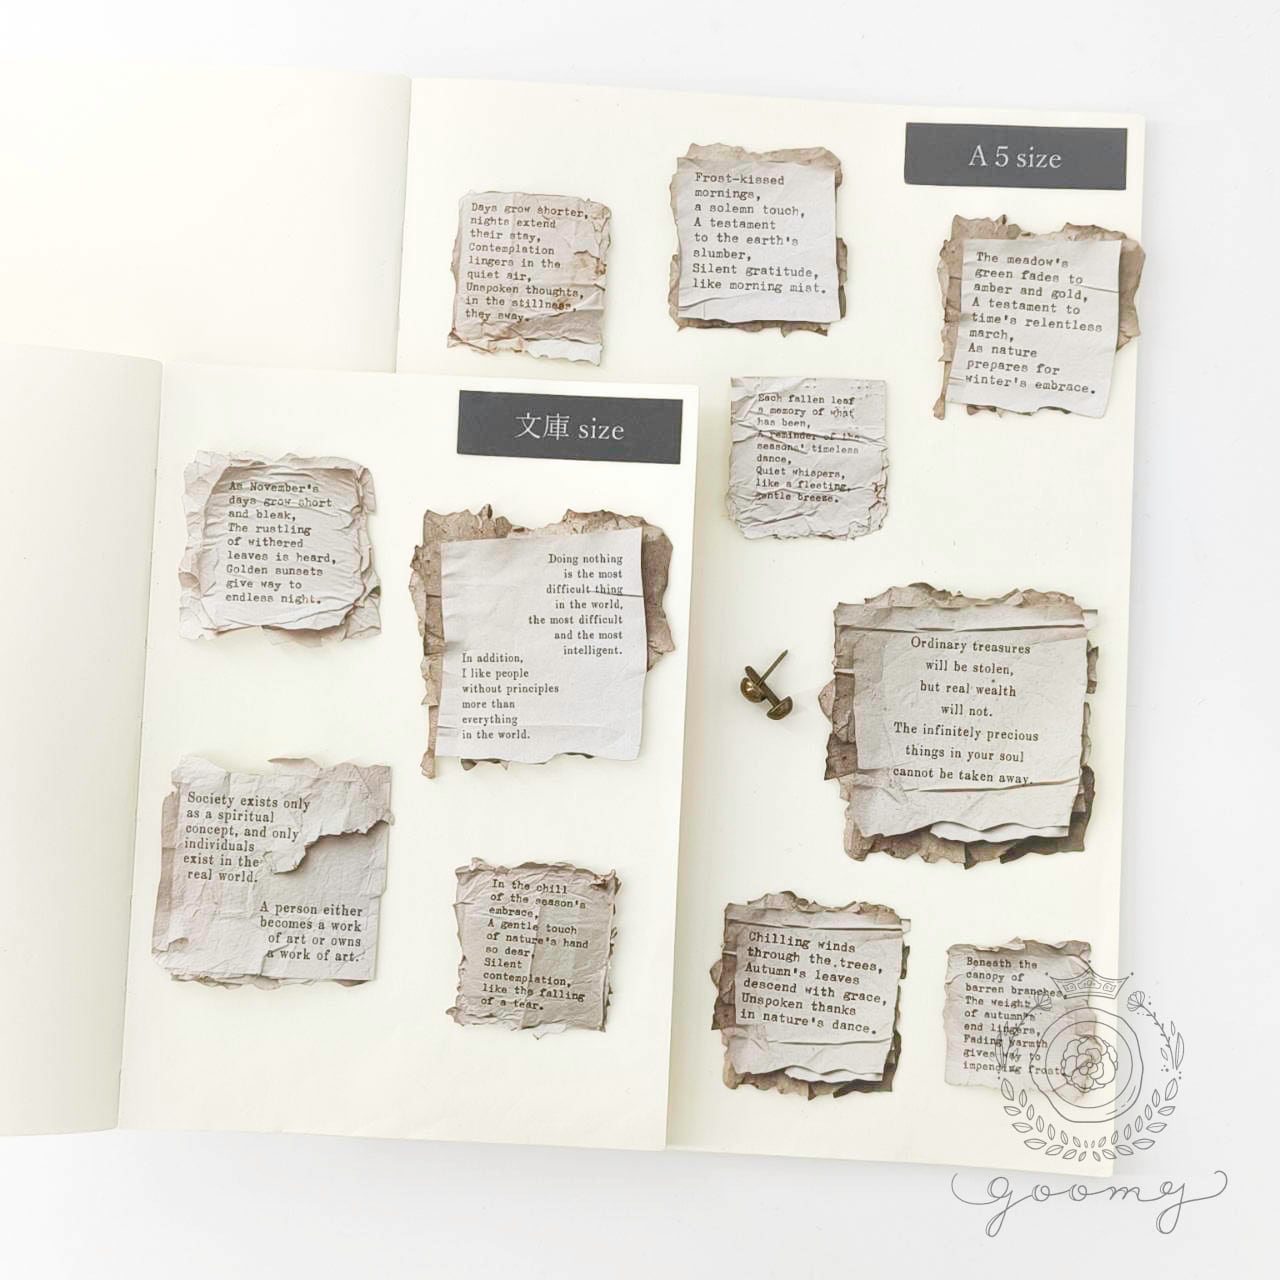 A 5 size
Days grow shorter,
nights extend
their stay,
Contemplation
lingers in the
quiet air,
Unspoken thoughts,
in the stillness,
they sway.
Frost-kissed
mornings,
a solemn touch,
A testament
to the earth's
slumber,
Silent gratitude,
like morning mist.
The meadow's
green fades to
amber and gold,
A testament to
time's relentless
march,
As nature
prepares for
winter's embrace.
Each fallen leaf
a memory of what
has been,
A reminder of the
seasons' timeless
dance,
Quiet whispers,
like a fleeting,
gentle breeze.
文庫 size
As November's
days grow short
and bleak,
The rustling
of withered
leaves is heard,
Golden sunsets
give way to
endless night.
Doing nothing
is the most
difficult thing
in the world,
the most difficult
and the most
intelligent.
In addition,
I like people
without principles
more than
everything
in the world.
Ordinary treasures
will be stolen,
but real wealth
will not.
The infinitely precious
things in your soul
cannot be taken away.
Society exists only
as a spiritual
concept, and only
individuals
exist in the
real world.
A person either
becomes a work
of art or owns
a work of art.
In the chill
of the season's
embrace,
A gentle touch
of nature's hand
so dear,
Silent
contemplation,
like the falling
of a tear.
Chilling winds
through the trees,
Autumn's leaves
descend with grace,
Unspoken thanks
in nature's dance.
Beneath the
canopy of
barren branches,
The weight
of autumn's
end lingers,
Fading warmth
gives way to
impending frost.
goomy